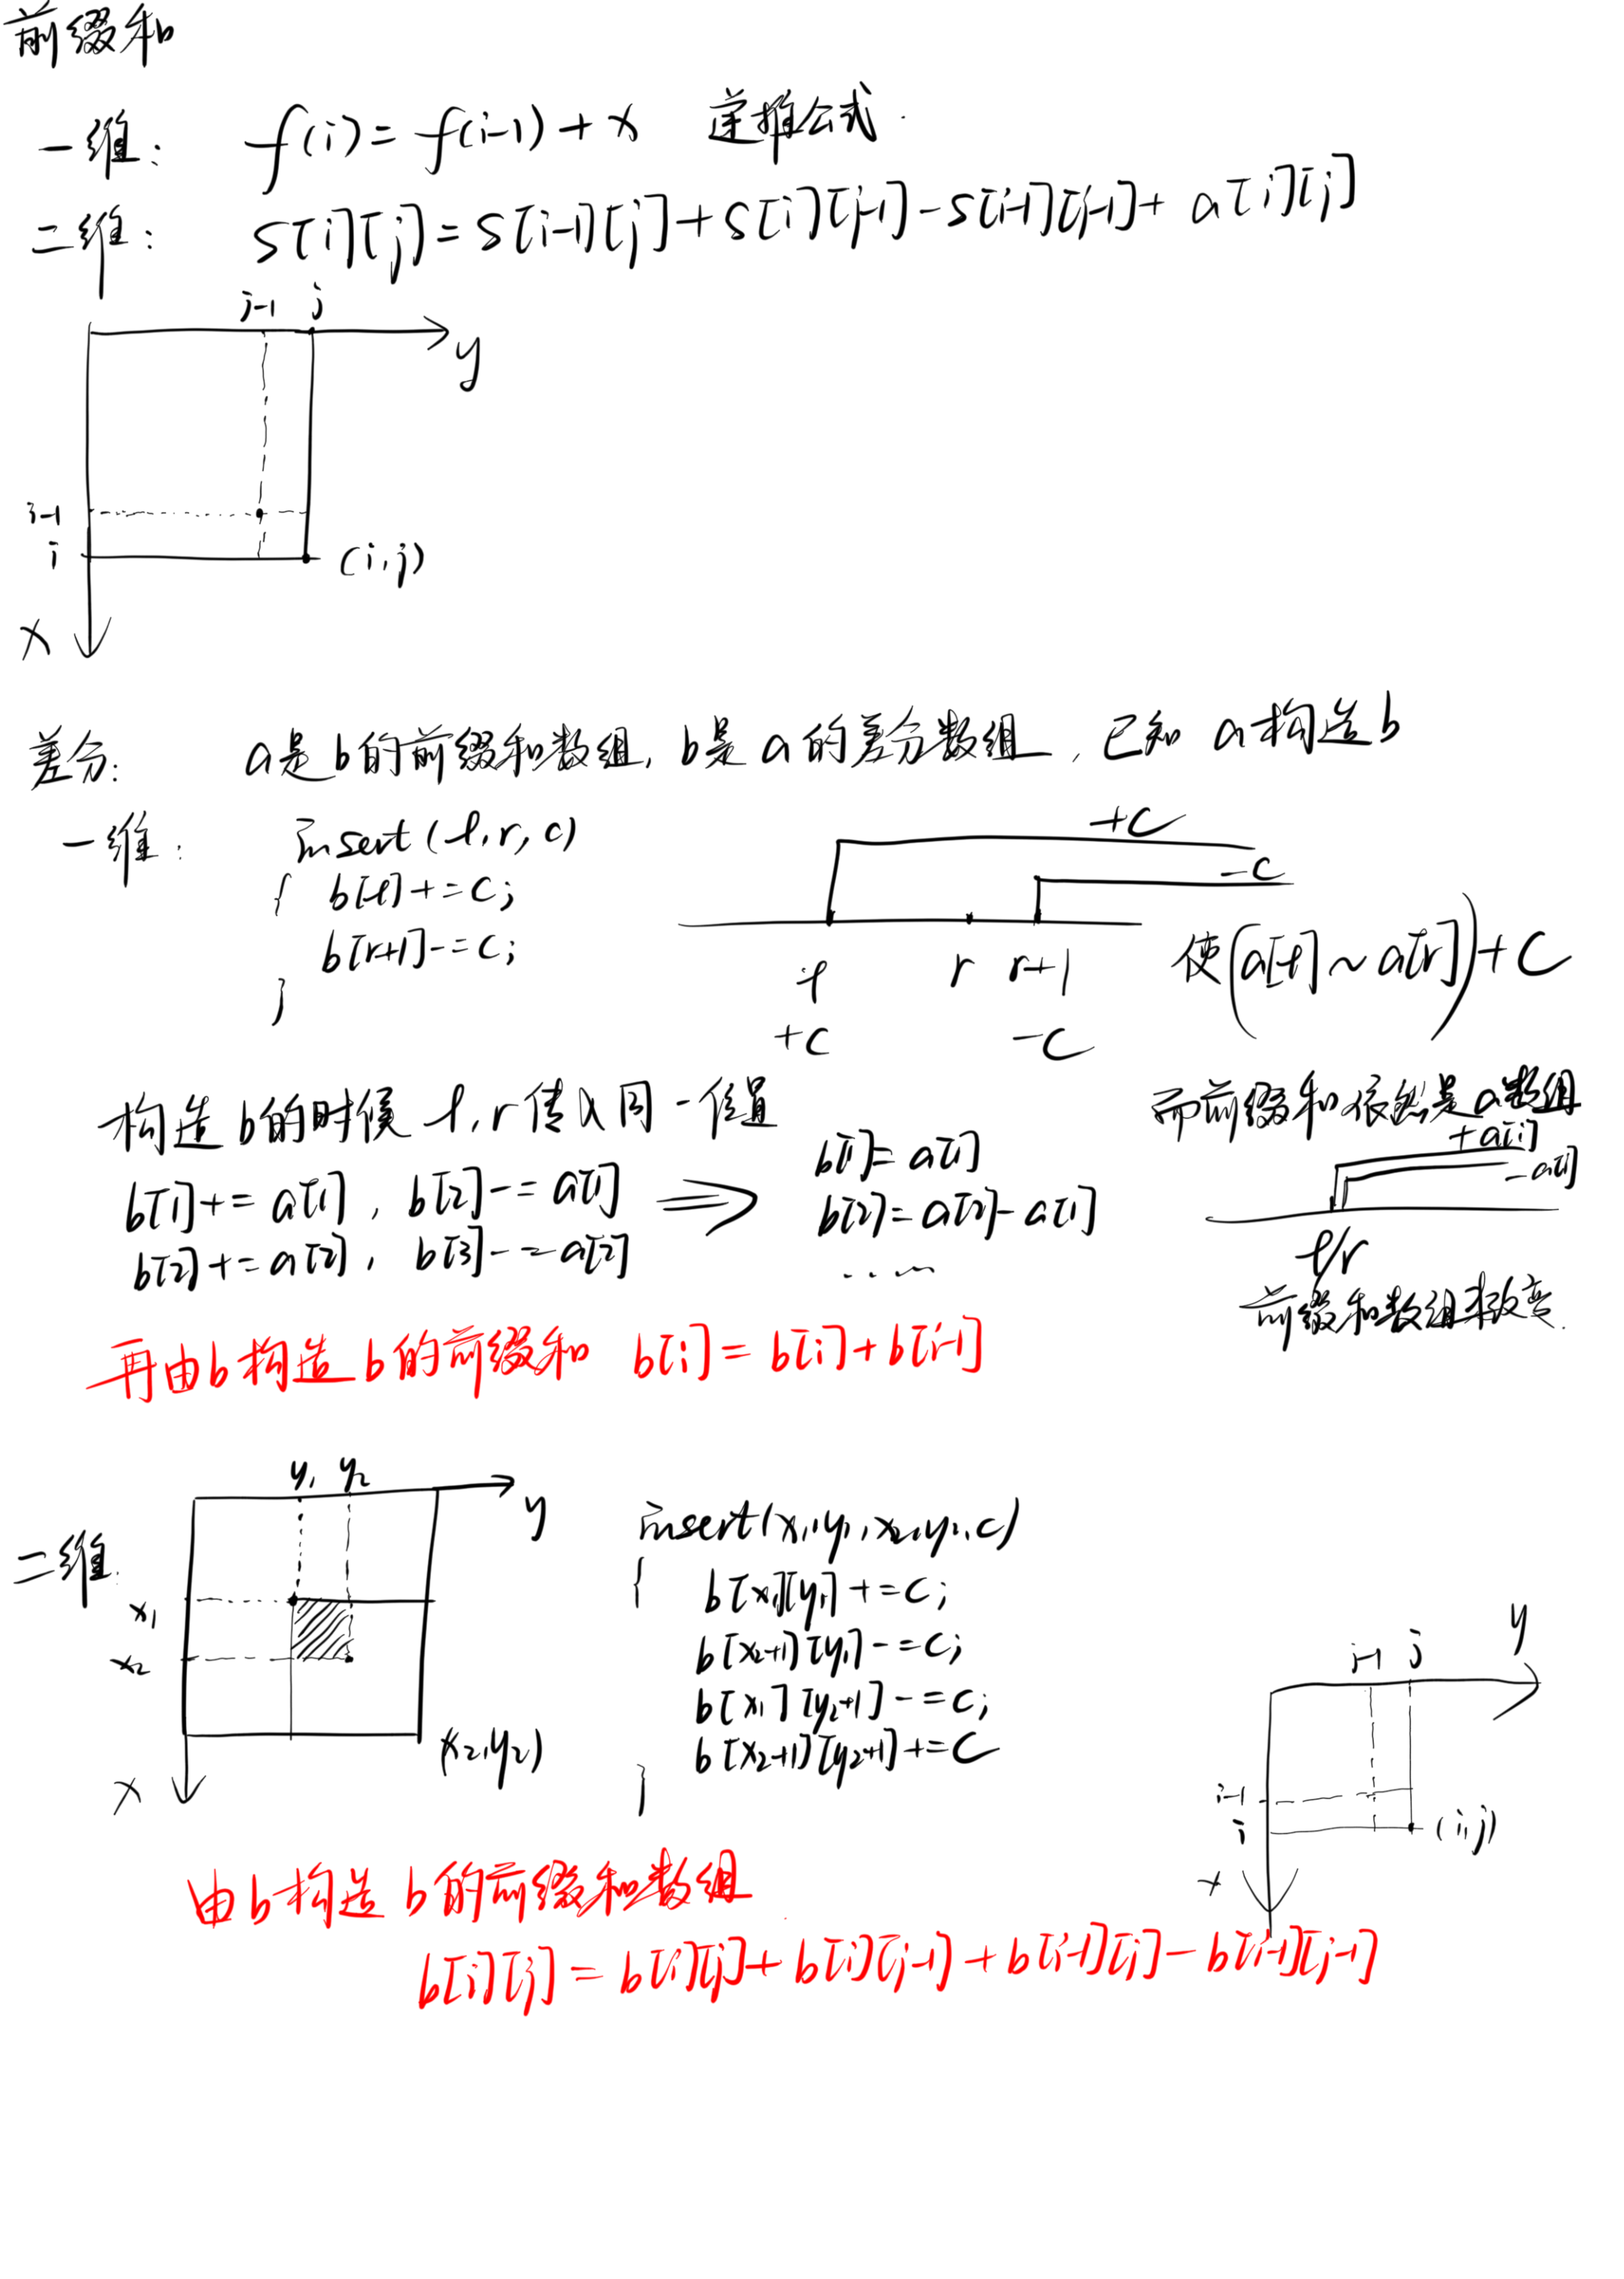 前缀和
一维: f(i)=f(i-1)+x 递推公式.
二维: S[i][j]=S[i-1][j]+S[i][j-1]-S[i-1][j-1]+a[i][j]
j-1 j
y
i-1
i (i,j)
x
差分: a是b的前缀和数组, b是a的差分数组, 已知a构造b
一维: insert(l,r,c)
{ b[l]+=c;
b[r+1]-=c;
}
+c
-c
l r r+1
+c -c
使(a[l]~a[r])+c
构造b的时候 l,r传入同一位置
b[1]+=a[1], b[2]-=a[1] ⇒ b[1]=a[1]
b[2]+=a[2], b[3]-=a[2] b[2]=a[2]-a[1]
......
而前缀和依然是a数组
+a[i]
-a[i]
l/r
前缀和数组未改变.
再由b构造b的前缀和 b[i]=b[i]+b[i-1]
二维:
y1 y2
y
x1
x2
(x2,y2)
x
insert(x1,y1,x2,y2,c)
{ b[x1][y1]+=c;
b[x2+1][y1]-=c;
b[x1][y2+1]-=c;
b[x2+1][y2+1]+=c
}
y
j-1 j
i-1
i (i,j)
x
由b构造b的前缀和数组
b[i][j]=b[i][j]+b[i][j-1]+b[i-1][j]-b[i-1][j-1]